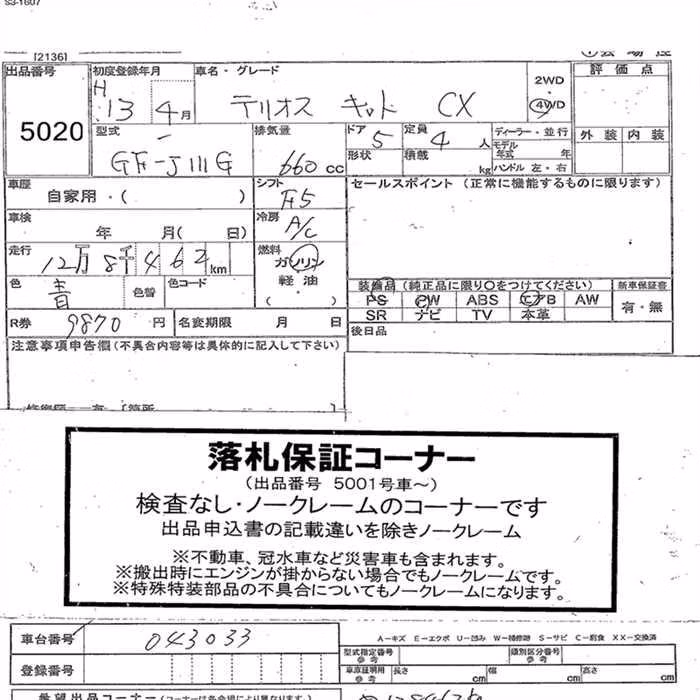 [2136]
出品番号 5020
初度登録年月 H.13 4月
車名・グレード テリオス キッド CX
2WD
4WD
評価点
外装 内装
型式 GF-J111G
排気量 660 cc
ドア 5
定員 4 人
ディーラー・並行
モデル年式 年
形状
積載 kg
ハンドル 左・右
車歴 自家用・( )
シフト F5
セールスポイント (正常に機能するものに限ります)
車検 年 月( 日)
冷房 A/C
走行 12万8千462 km
燃料 ガソリン
軽油
( )
色 青
色替
色コード
装備品 (純正品に限り〇をつけてください)
新車保証書
PS PW ABS エアB AW
有・無
SR ナビ TV 本革
R券 9870円
名変期限 月 日
後日品
注意事項申告欄(不具合内容等は具体的に記入して下さい)
落札保証コーナー
(出品番号 5001号車～)
検査なし・ノークレームのコーナーです
出品申込書の記載違いを除きノークレーム
※不動車、冠水車など災害車も含まれます。
※搬出時にエンジンが掛からない場合でもノークレームです。
※特殊特装部品の不具合についてもノークレームになります。
車台番号 043033
A-キズ E-エクボ U-凹み W-補修跡 S-サビ C-腐食 XX-交換済
型式指定番号 参考
類別区分番号 参考
登録番号
車庫証明用 参考 長さ cm 幅 cm 高さ cm
希望出品コーナー